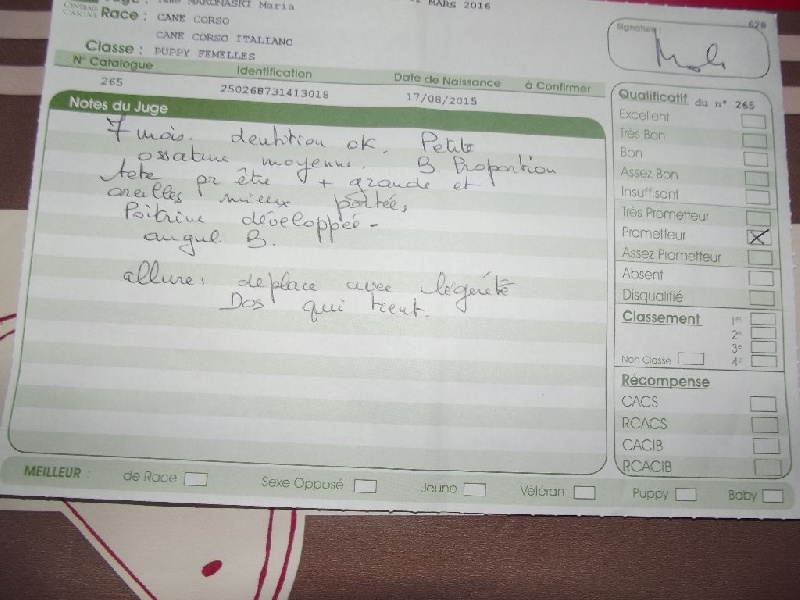 Maria
MARS 2016
Race : CANE CORSO
CANE CORSO ITALIANO
Classe : PUPPY FEMELLES
N° Catalogue
Identification
Date de Naissance
à Confirmer
265
250268731413018
17/08/2015
Notes du Juge
7 mois. dentition ok. Petite
ossature moyenne. B. Proportion
tete pr être + grande et
oreilles mieux portées,
Poitrine développée -
angul B.
allure : deplace avec légéreté
Dos qui tient.
Signature
Qualificatif du n° 265
Excellent
Très Bon
Bon
Assez Bon
Insuffisant
Très Prometteur
Prometteur X
Assez Prometteur
Absent
Disqualifié
Classement 1er
2e
3e
Non Classé 4e
Récompense
CACS
RCACS
CACIB
RCACIB
MEILLEUR : de Race Sexe Opposé Jeune Vétéran Puppy Baby